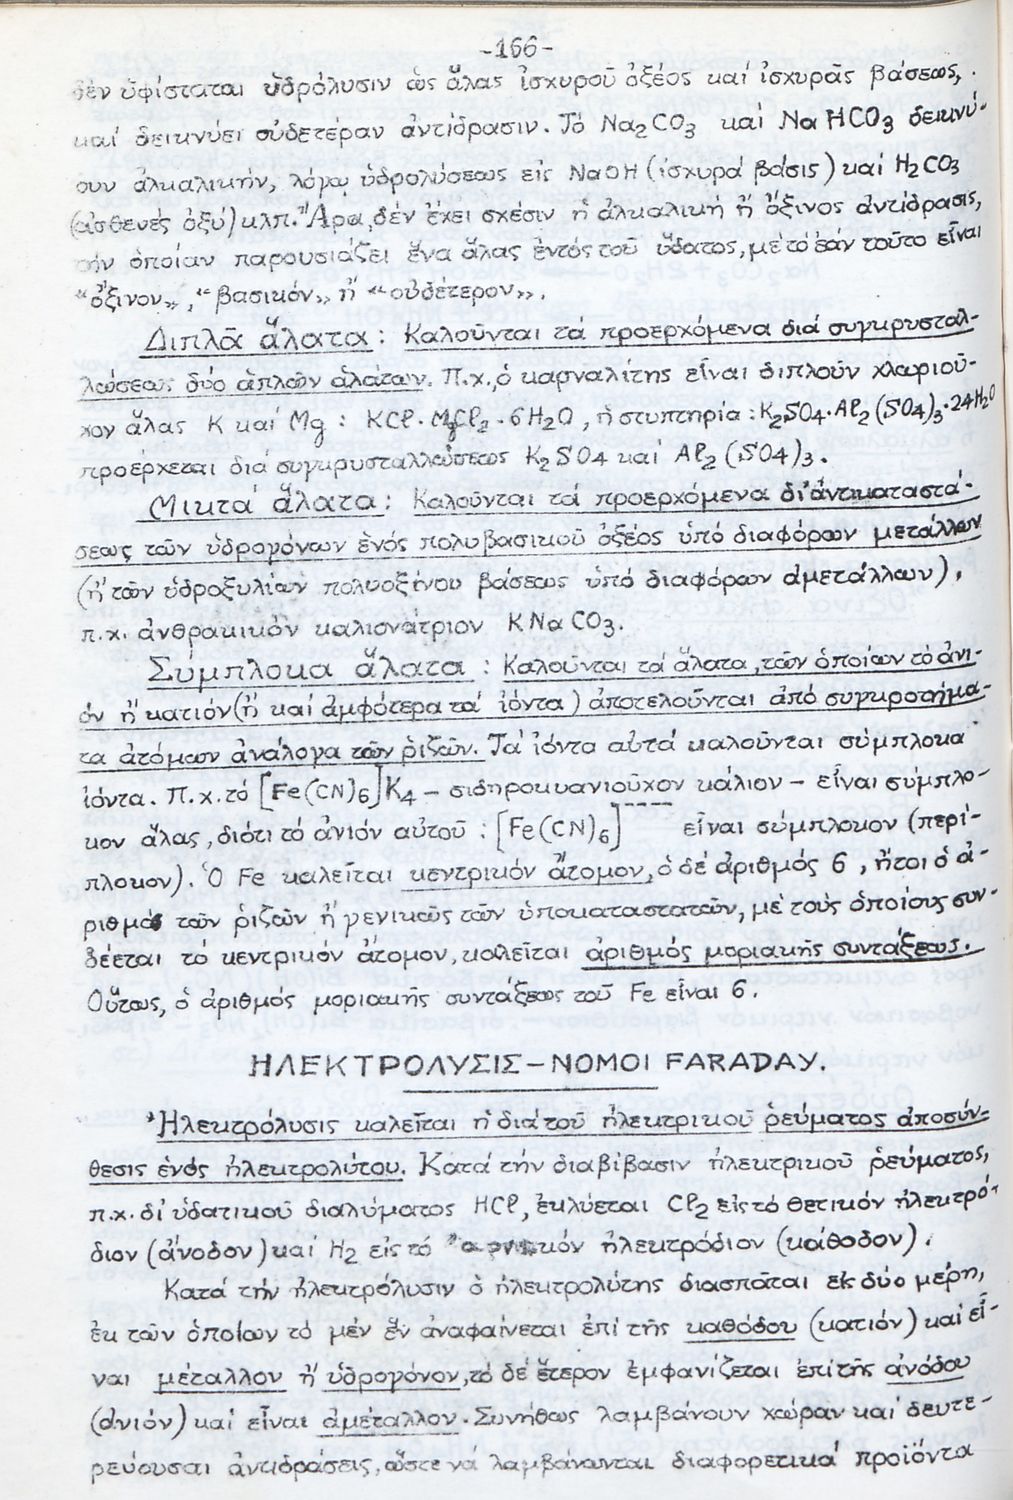 -166-
δέν ὑφίσταται ὑδρόλυσιν ὡς ἅλας ἰσχυροῦ ὀξέος καί ἰσχυρᾶς βάσεως,
καί δεικνύει οὐδετέραν ἀντίδρασιν. Τό Na₂CO₃ καί NaHCO₃ δεικνύ-
ουν ἀλκαλικήν, λόγῳ ὑδρολύσεως εἰς NaOH (ἰσχυρά βάσις) καί H₂CO₃
(ἀσθενές ὀξύ) κλπ. Ἄρα, δέν ἔχει σχέσιν ἡ ἀλκαλική ἤ ὄξινος ἀντίδρασις,
τήν ὁποίαν παρουσιάζει ἕνα ἅλας ἐντός τοῦ ὕδατος, μέ τό ἐάν τοῦτο εἶναι
“ὄξινον„, “βασικόν„ ἤ “οὐδέτερον„.
Διπλᾶ ἅλατα: Καλοῦνται τά προερχόμενα διά συγκρυσταλ-
λώσεως δύο ἁπλῶν ἁλάτων. Π.χ. ὁ καρναλίτης εἶναι διπλοῦν χλωριοῦ-
χον ἅλας K καί Mg: KCl·MgCl₂·6H₂O, ἡ στυπτηρία: K₂SO₄·Al₂(SO₄)₃·24H₂O
προέρχεται διά συγκρυσταλλώσεως K₂SO₄ καί Al₂(SO₄)₃.
Μικτά ἅλατα: Καλοῦνται τά προερχόμενα δι’ ἀντικαταστά-
σεως τῶν ὑδρογόνων ἑνός πολυβασικοῦ ὀξέος ὑπό διαφόρων μετάλλων
(ἤ τῶν ὑδροξυλίων πολυοξίνου βάσεως ὑπό διαφόρων ἀμετάλλων),
π.χ. ἀνθρακικόν καλιονάτριον KNaCO₃.
Σύμπλοκα ἅλατα: Καλοῦνται τά ἅλατα, τῶν ὁποίων τό ἀνι-
όν ἤ κατιόν (ἤ καί ἀμφότερα τά ἰόντα) ἀποτελοῦνται ἀπό συγκροτήμα-
τα ἀτόμων ἀνάλογα τῶν ῥιζῶν. Τά ἰόντα αὐτά καλοῦνται σύμπλοκα
ἰόντα. Π.χ. τό [Fe(CN)₆]K₄ – σιδηροκυανιοῦχον κάλιον – εἶναι σύμπλο-
κον ἅλας, διότι τό ἀνιόν αὐτοῦ: [Fe(CN)₆]⁻⁻⁻⁻ εἶναι σύμπλοκον (περί-
πλοκον). Ὁ Fe καλεῖται κεντρικόν ἄτομον, ὁ δέ ἀριθμός 6, ἤτοι ὁ ἀ-
ριθμός τῶν ῥιζῶν ἤ γενικῶς τῶν ὑποκαταστατῶν, μέ τούς ὁποίους συν-
δέεται τό κεντρικόν ἄτομον, καλεῖται ἀριθμός μοριακῆς συντάξεως.
Οὕτως, ὁ ἀριθμός μοριακῆς συντάξεως τοῦ Fe εἶναι 6.
ΗΛΕΚΤΡΟΛΥΣΙΣ – ΝΟΜΟΙ FARADAY.
Ἠλεκτρόλυσις καλεῖται ἡ διά τοῦ ἠλεκτρικοῦ ῥεύματος ἀποσύν-
θεσις ἑνός ἠλεκτρολύτου. Κατά τήν διαβίβασιν ἠλεκτρικοῦ ῥεύματος,
π.χ. δι’ ὑδατικοῦ διαλύματος HCl, ἐκλύεται Cl₂ εἰς τό θετικόν ἠλεκτρό-
διον (ἄνοδον) καί H₂ εἰς τό ἀρνικόν ἠλεκτρόδιον (κάθοδον).
Κατά τήν ἠλεκτρόλυσιν ὁ ἠλεκτρολύτης διασπᾶται εκ δύο μέρη,
ἐκ τῶν ὁποίων τό μέν ἕν ἀναφαίνεται ἐπί τῆς καθόδου (κατιόν) καί εἶ-
ναι μέταλλον ἤ ὑδρογόνον, τό δέ ἕτερον ἐμφανίζεται ἐπί τῆς ἀνόδου
(ἀνιόν) καί εἶναι ἀμέταλλον. Συνήθως λαμβάνουν χώραν καί δευτε-
ρεύουσαι ἀντιδράσεις, ὥστε νά λαμβάνωνται διαφορετικά προϊόντα